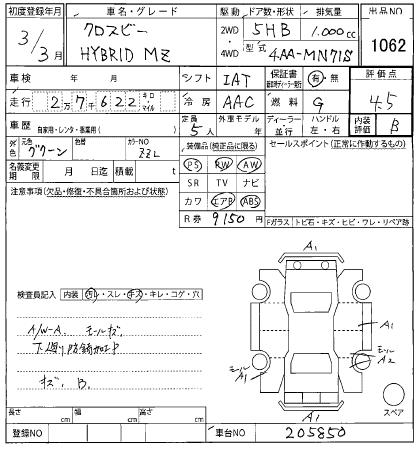 初度登録年月 車名・グレード 駆動 ドア数・形状 排気量 出品NO
3/3月 クロスビー HYBRID MZ 2WD 4WD 5HB 1.000cc 1062
型式 4AA-MN71S
車検 年 月 シフト IAT 保証書 有・無 評価点
走行 2万7千622 キロ・マイル 冷房 AAC 燃料 G 4.5
車歴 自家用・レンタ・事業用( ) 定員 5人 外車モデル 年 ディーラー・並行 ハンドル 左・右 内装評価 B
外色 元色 グリーン 色替 カラーNO ZZL 装備品(純正品に限る) セールスポイント(正常に作動するもの)
名義変更期限 月 日迄 積載 t PS PW AW
注意事項(欠品・修復・不具合箇所および状態) SR TV ナビ
カワ エアB ABS
R券 9150円
Fガラス トビ石・キズ・ヒビ・ワレ・リペア跡
A1
検査員記入 内装 汚レ・スレ・キズ・キレ・コゲ・穴
A/W-A. モールキズ.
A1
下廻り防錆加工中
モール A1
モール A2
キズ. B.
A1
スペア
長さ cm 幅 cm 高さ cm
登録NO 車台NO 205850